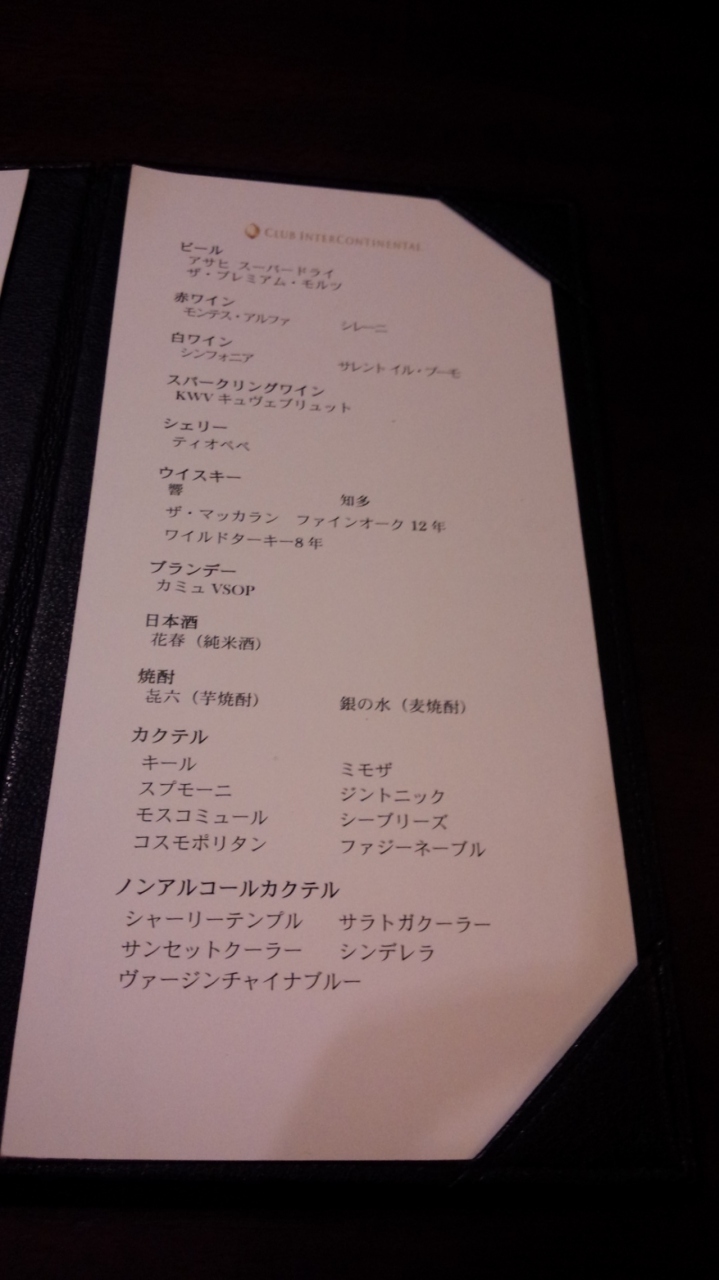 CLUB INTERCONTINENTAL
ビール
アサヒ スーパードライ
ザ・プレミアム・モルツ
赤ワイン
モンテス・アルファ シレーニ
白ワイン
シンフォニア サレント イル・プーモ
スパークリングワイン
KWV キュヴェブリュット
シェリー
ティオペペ
ウイスキー
響 知多
ザ・マッカラン ファインオーク 12 年
ワイルドターキー8 年
ブランデー
カミュ VSOP
日本酒
花春（純米酒）
焼酎
㐂六（芋焼酎） 銀の水（麦焼酎）
カクテル
キール ミモザ
スプモーニ ジントニック
モスコミュール シーブリーズ
コスモポリタン ファジーネーブル
ノンアルコールカクテル
シャーリーテンプル サラトガクーラー
サンセットクーラー シンデレラ
ヴァージンチャイナブルー